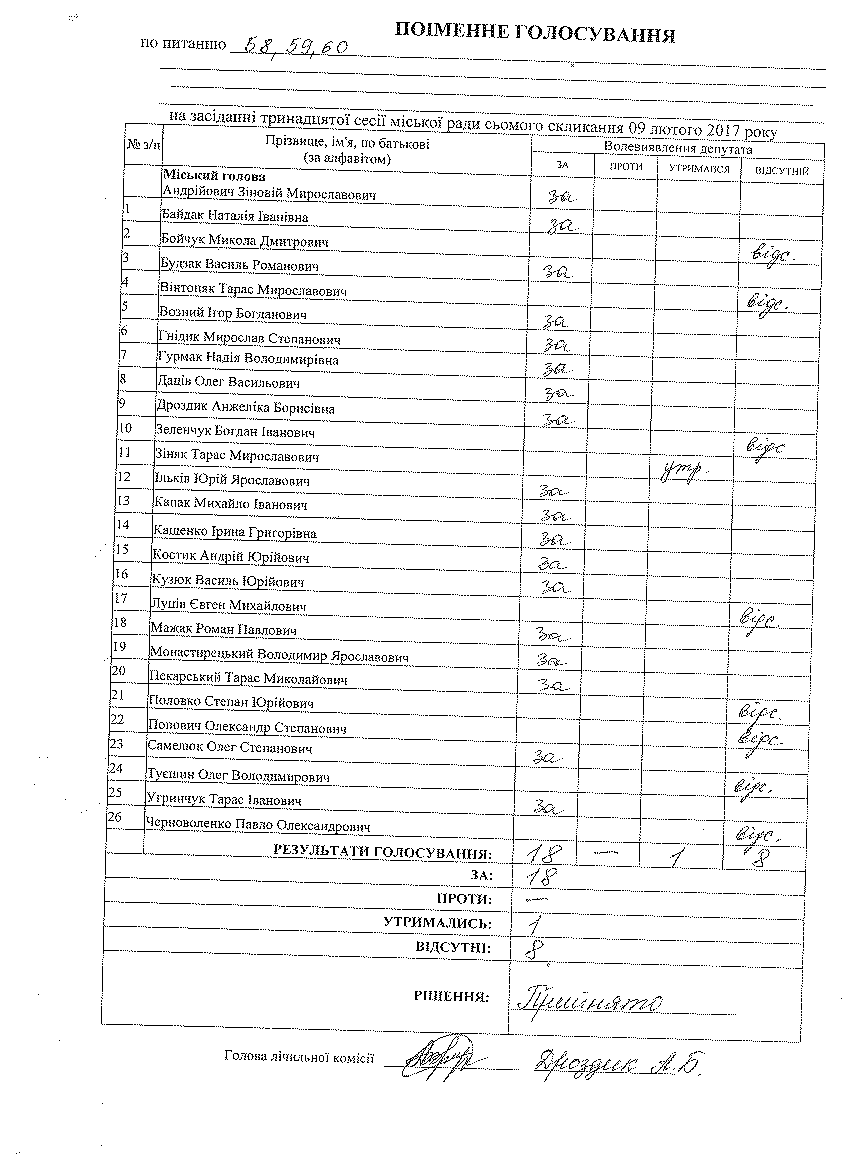 ПОІМЕННЕ ГОЛОСУВАННЯ
по питанню 58, 59, 60
на засіданні тринадцятої сесії міської ради сьомого скликання 09 лютого 2017 року
№ з/п Прізвище, ім'я, по батькові (за алфавітом) Волевиявлення депутата
ЗА ПРОТИ УТРИМАВСЯ ВІДСУТНІЙ
Міський голова
Андрійович Зіновій Мирославович за
1 Байдак Наталія Іванівна за
2 Бойчук Микола Дмитрович відс.
3 Будзак Василь Романович за
4 Вінтоняк Тарас Мирославович відс.
5 Возний Ігор Богданович за
6 Гнідик Мирослав Степанович за
7 Гурмак Надія Володимирівна за
8 Даців Олег Васильович за
9 Дроздик Анжеліка Борисівна за
10 Зеленчук Богдан Іванович відс
11 Зіняк Тарас Мирославович утр.
12 Ільків Юрій Ярославович за
13 Капак Михайло Іванович за
14 Кащенко Ірина Григорівна за
15 Костик Андрій Юрійович за
16 Кузюк Василь Юрійович за
17 Луців Євген Михайлович відс.
18 Мажак Роман Павлович за
19 Монастирецький Володимир Ярославович за
20 Пекарський Тарас Миколайович за
21 Половко Степан Юрійович відс.
22 Попович Олександр Степанович відс.
23 Самелюк Олег Степанович за
24 Туєшин Олег Володимирович відс.
25 Угринчук Тарас Іванович за
26 Черноволенко Павло Олександрович відс.
РЕЗУЛЬТАТИ ГОЛОСУВАННЯ: 18 — 1 8
ЗА: 18
ПРОТИ: —
УТРИМАЛИСЬ: 1
ВІДСУТНІ: 8
РІШЕННЯ: Прийнято
Голова лічильної комісії Дроздик А.Б.